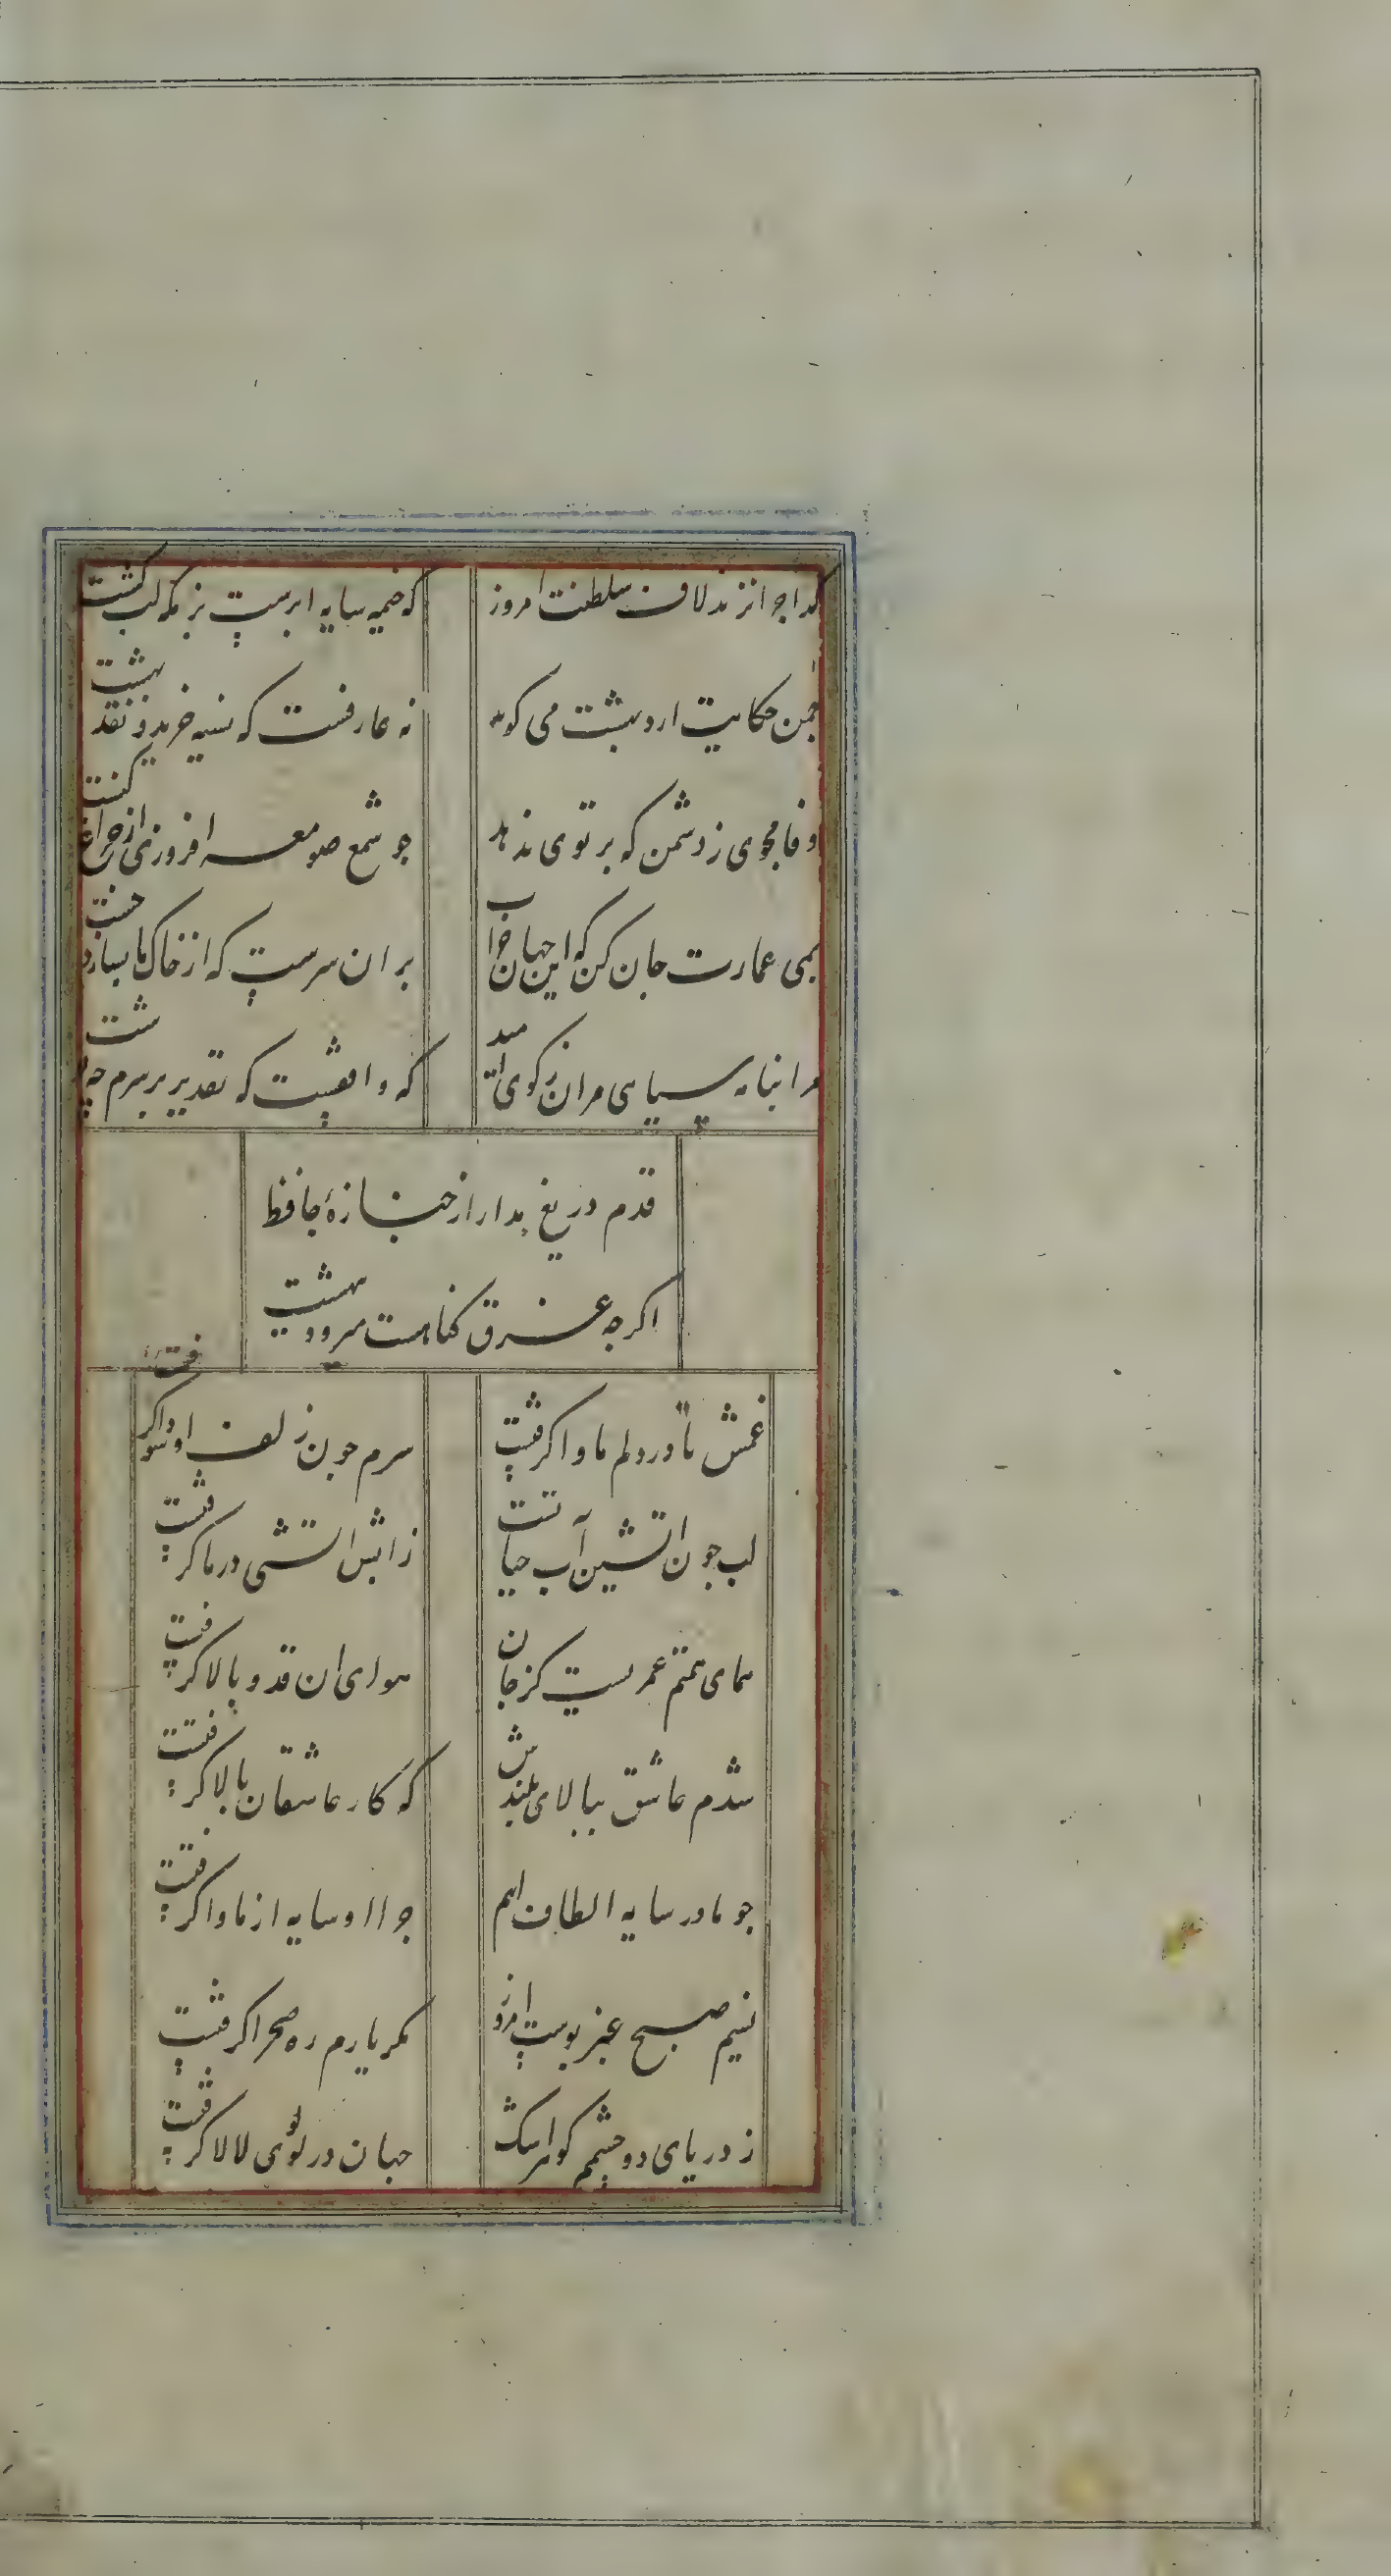 کدا جرا نزند لاف سلطنت امروز
که خیمه سایه ابرست بزمکه لب کشت
جمن حکایت اردیبهشت می کوید
نه عارفست که نسیه خرید و نقد بهشت
وفا مجوی ز دشمن که برتوی ندهد
جو شمع صومعه افروزی از جراغ کنشت
بمی عمارت جان کن که این جهان خراب
بران سرست که از خاک ما بسازد خشت
مرا بنامه سیاهی مران ز کوی امید
که واقفست که تقدیر بر سرم جه نوشت
قدم دریغ مدار از جنازهٔ حافظ
اکرجه غرق کناهست میرود بهشت
غمش تا در دلم ماوا کرفتست
سرم جون زلف او سودا کرفتست
لب جون اتشین آب حیاتست
زابش اتشی در ما کرفتست
همای همتم عمریست کز جان
هوای ان قد و بالا کرفتست
شدم عاشق ببالای بلندش
که کار عاشقان بالا کرفتست
جو ما در سایه الطاف اویم
جرا او سایه از ما وا کرفتست
نسیم صبح عنبر بوست امروز
مکر یارم ره صحرا کرفتست
ز دریای دو جشمم کوهر اشک
جهان در لؤلوی لالا کرفتست